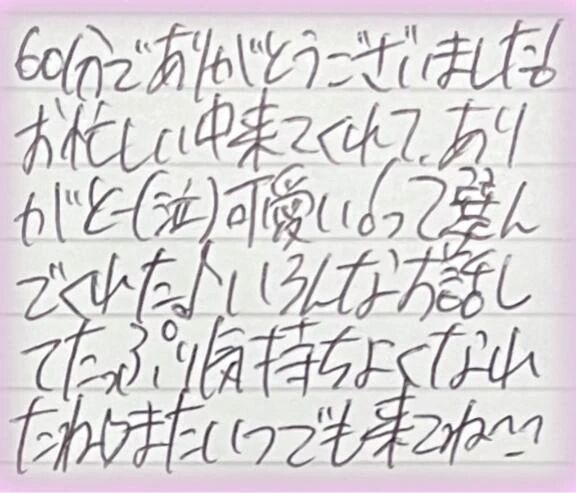 60分でありがとうございました
お忙しい中来てくれて、あり
がとー(泣)可愛いよって選ん
でくれた♪いろんなお話し
てたっぷり気持ちよくなれ
たねまたいつでも来てね〜